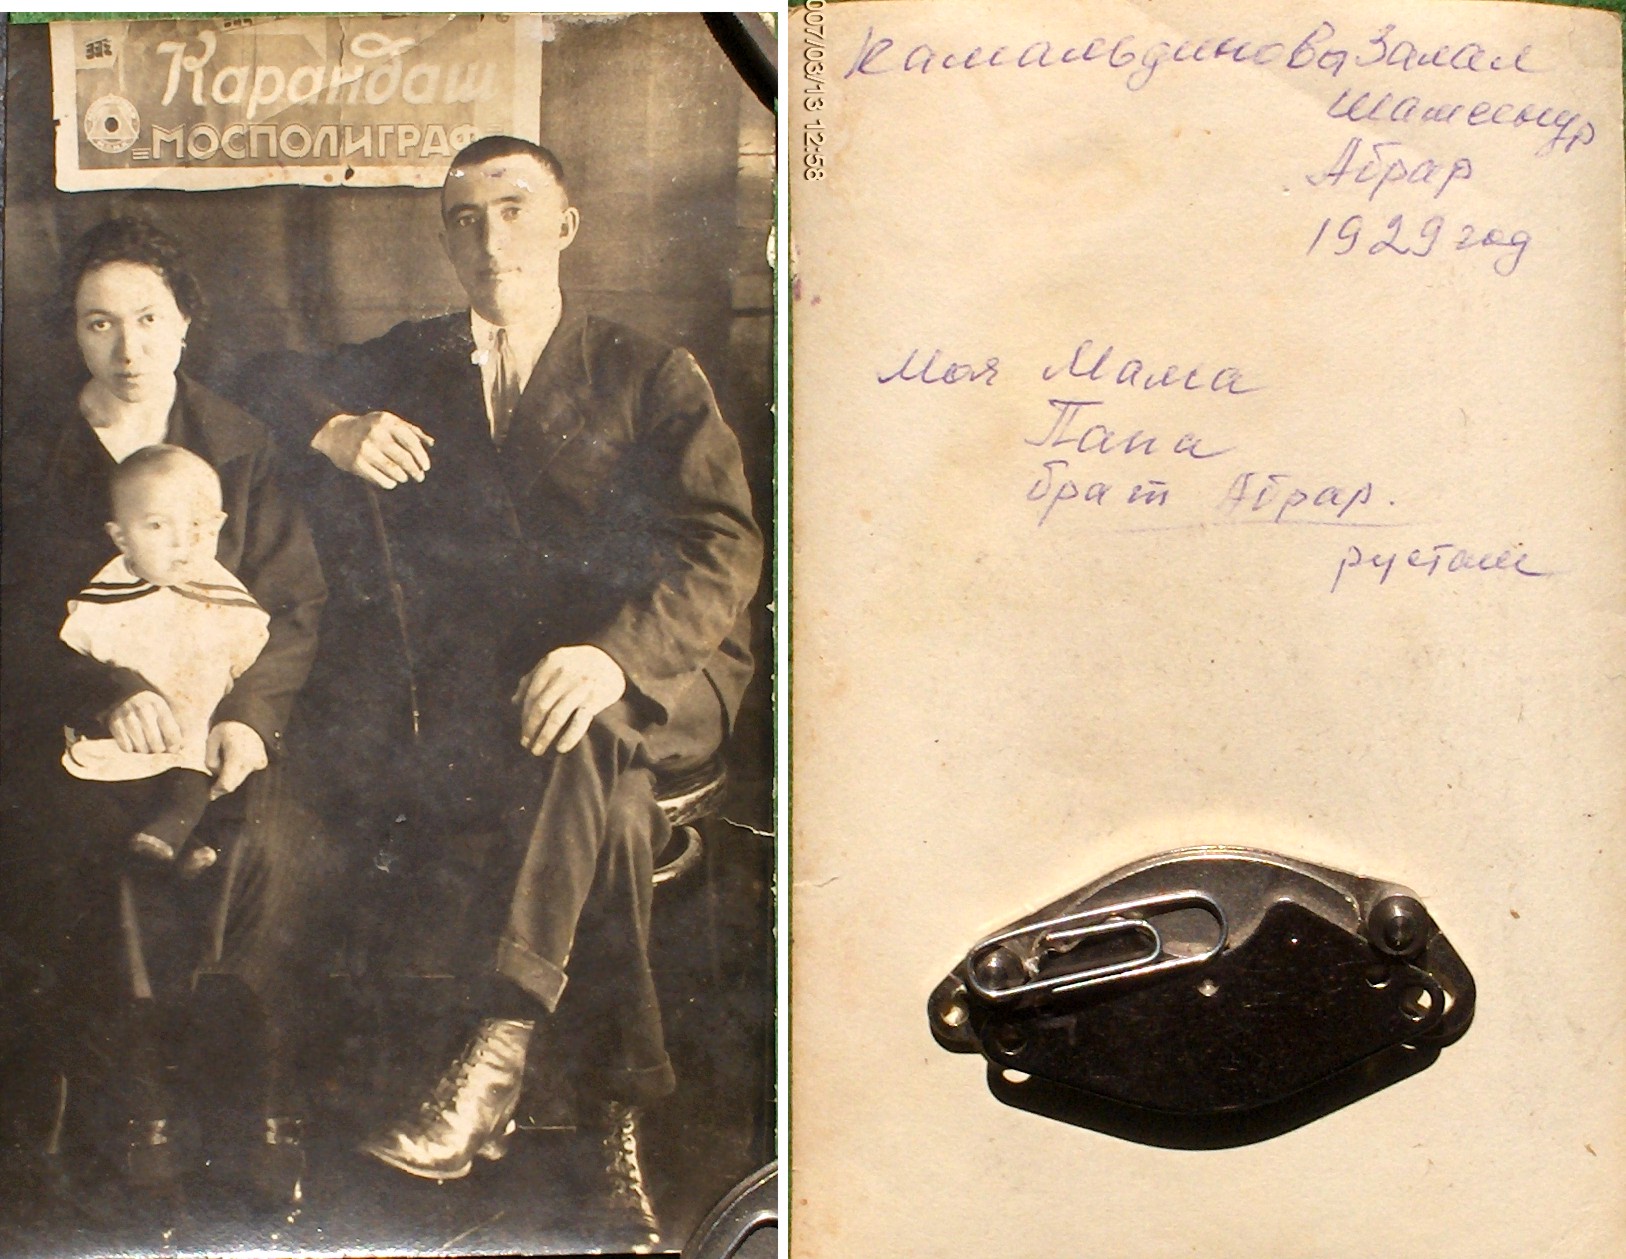 Карандаш
=МОСПОЛИГРАФ
Камальдиновы Залал
Шамсенур
Абрар
1929 год
Моя Мама
Папа
брат Абрар.
рустам
007/03/13 12:58